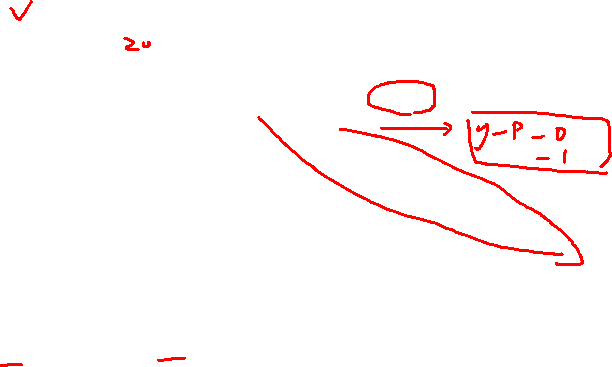 20
y-P-0
-1